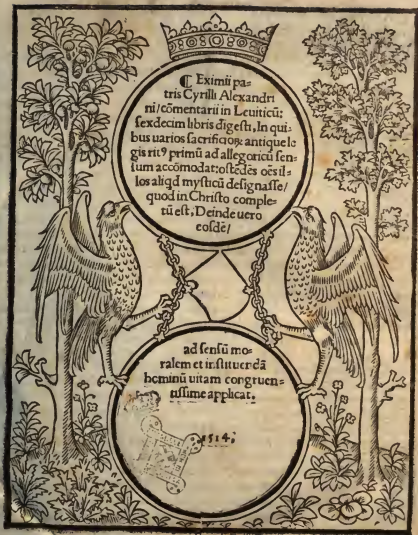 ¶ Eximii pa-
tris Cyrilli Alexandri
ni/cōmentarii in Leuiticū:
sexdecim libris digesti, In qui-
bus uarios sacrificioꝝ antique le
gis ritꝰ primū ad allegoricū sen-
sum accōmodat: ostēdēs oēs il-
los aliqd mysticū designasse/
quod in Christo comple-
tū est, Deinde uero
eosdē/
ad sensū mo-
ralem et instituendā
hominū uitam congruen-
tissime applicat.
.1514.